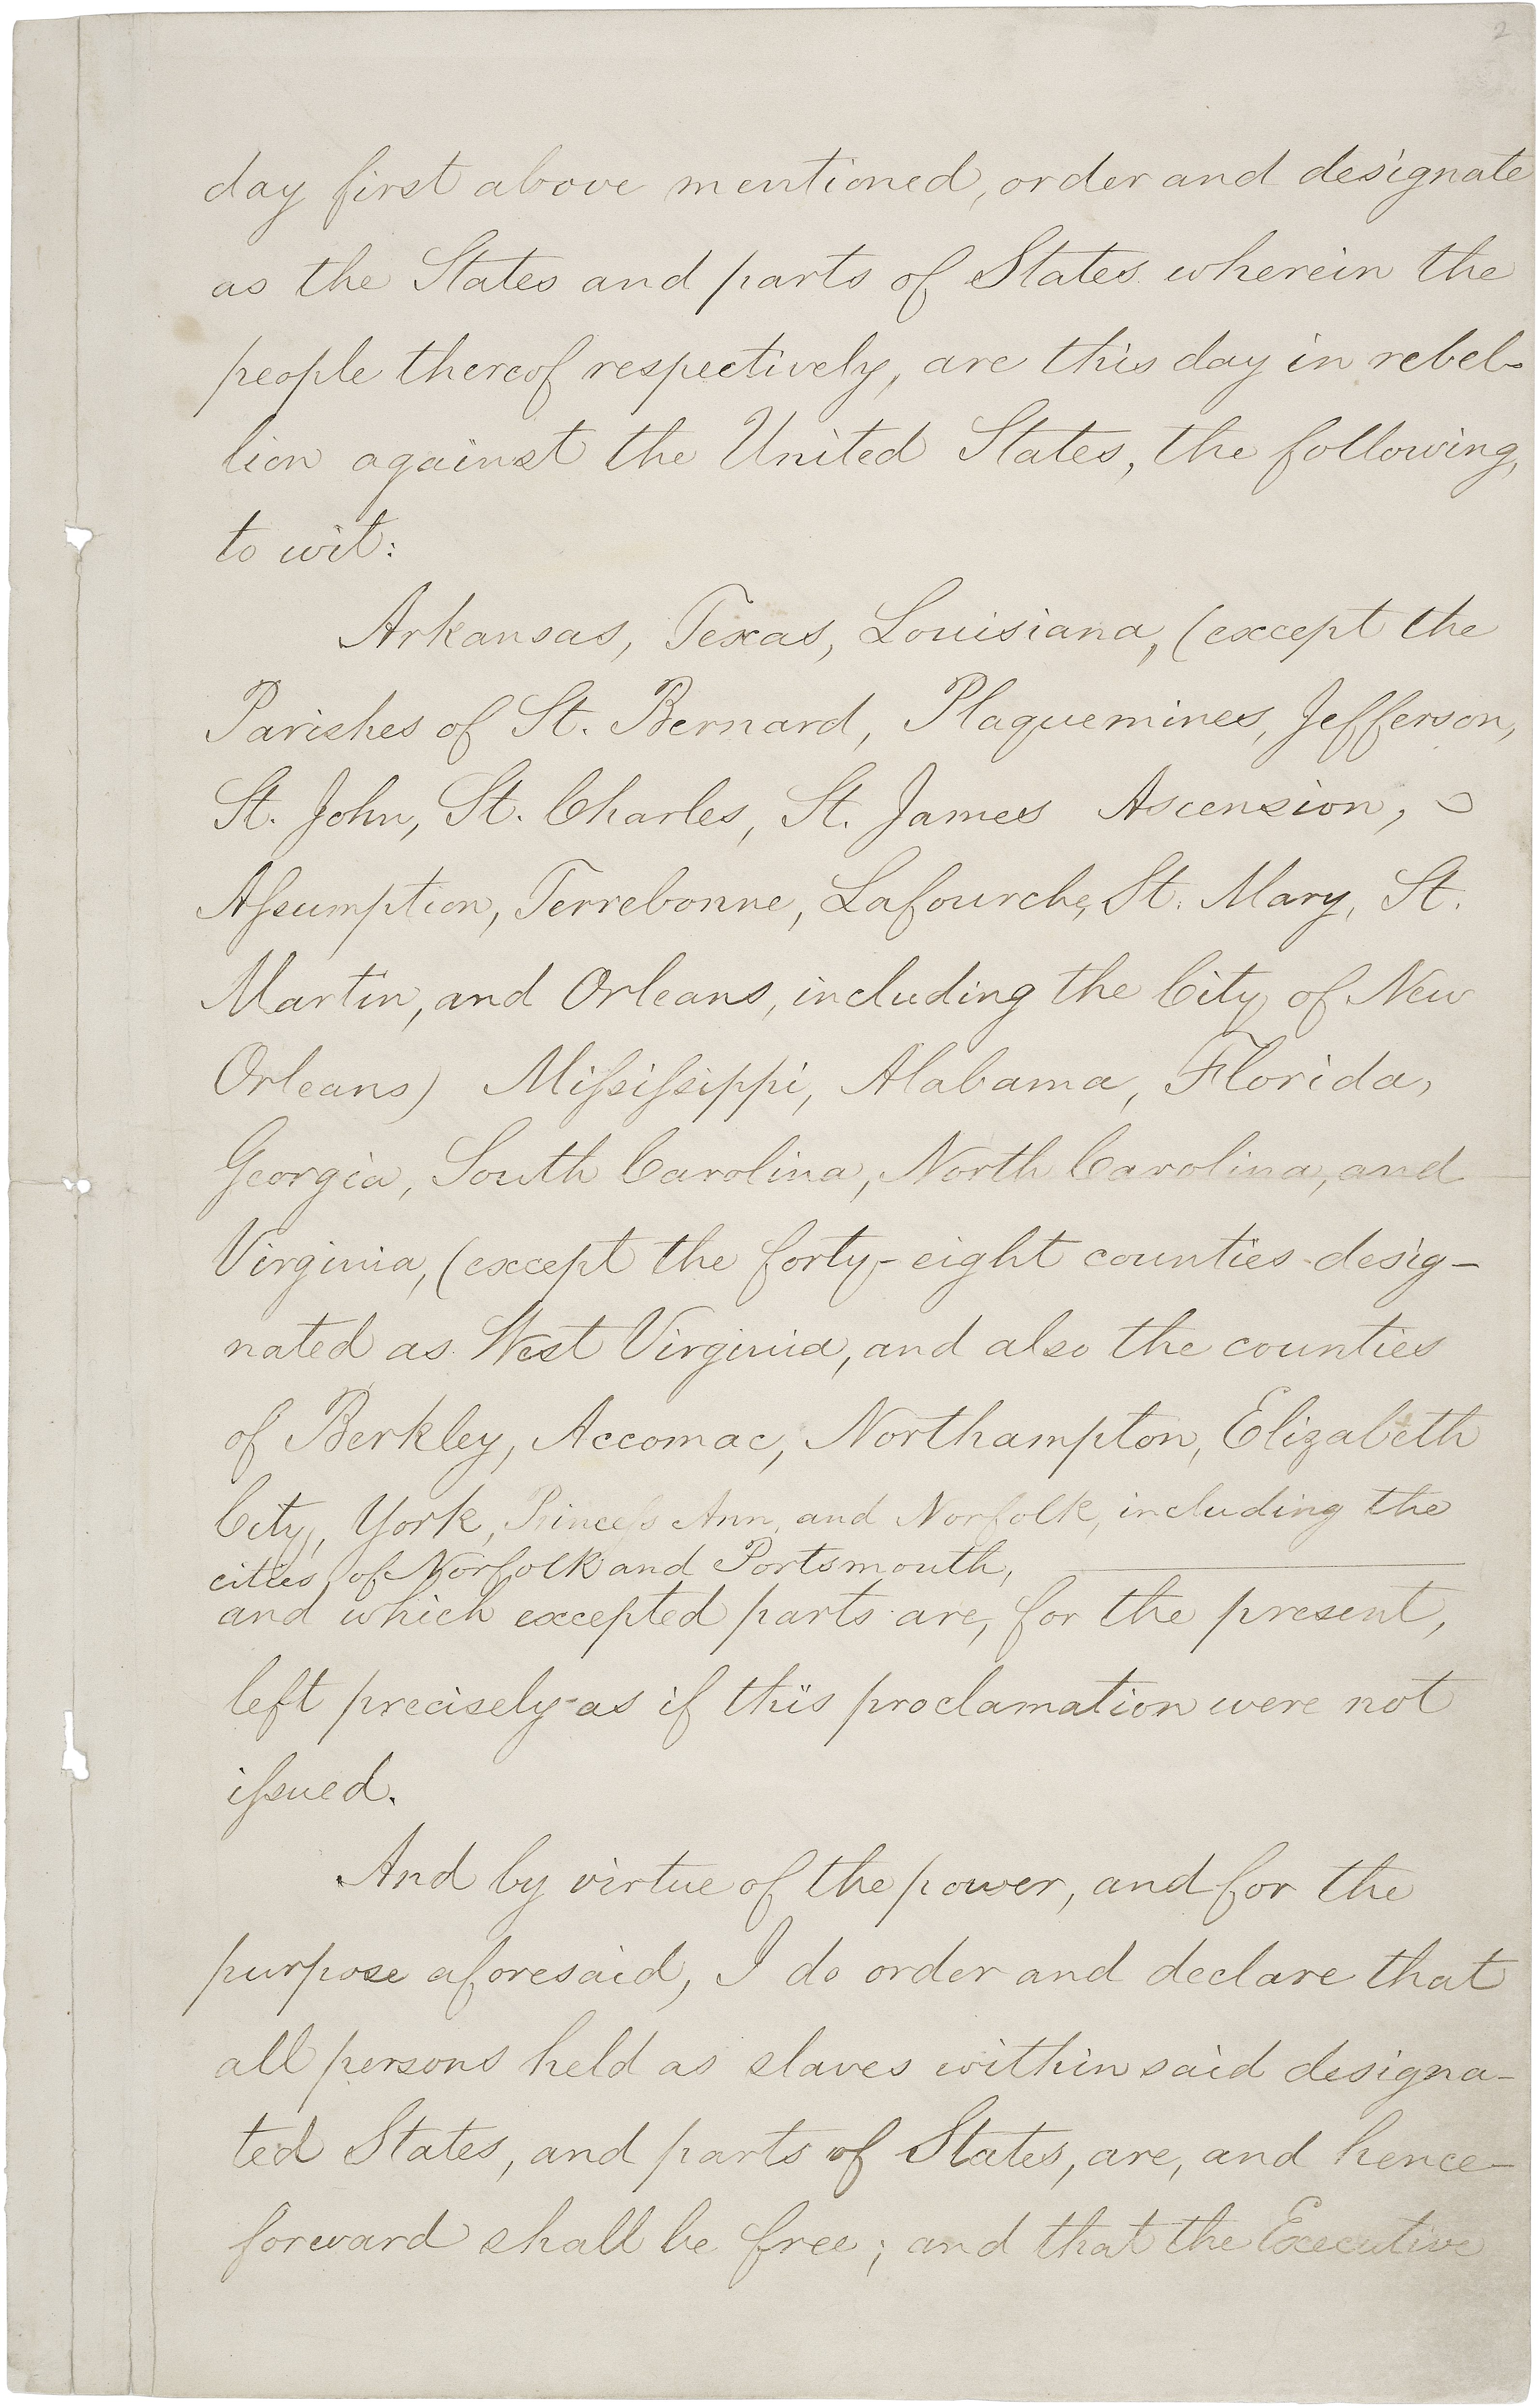 2
day first above mentioned, order and designate
as the States and parts of States wherein the
people thereof respectively, are this day in rebel-
lion against the United States, the following,
to wit:
Arkansas, Texas, Louisiana, (except the
Parishes of St. Bernard, Plaquemines, Jefferson,
St. John, St. Charles, St. James Ascension,
Aſsumption, Terrebonne, Lafourche, St. Mary, St.
Martin, and Orleans, including the City of New
Orleans) Miſsiſsippi, Alabama, Florida,
Georgia, South Carolina, North Carolina, and
Virginia, (except the forty-eight counties desig-
nated as West Virginia, and also the counties
of Berkley, Accomac, Northampton, Elizabeth
City, York, Princeſs Ann, and Norfolk, including the
cities of Norfolk and Portsmouth,
and which excepted parts are, for the present,
left precisely as if this proclamation were not
iſsued.
And by virtue of the power, and for the
purpose aforesaid, I do order and declare that
all persons held as slaves within said designa-
ted States, and parts of States, are, and hence-
forward shall be free; and that the Executive